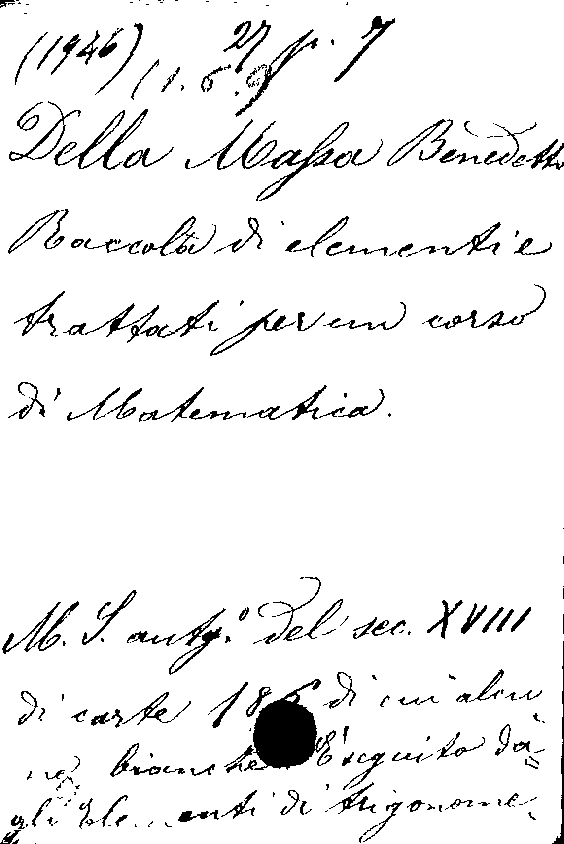 (1946) 27 p. 7
(1. 6. 9
Della Massa Benedetto
Raccolta di elementi e
trattati per un corso
di Matematica.
M. S. autg.º del sec. XVIII
di carte 186 di cui alcu
ne bianche È seguito da=
gli Elementi di trigonome-